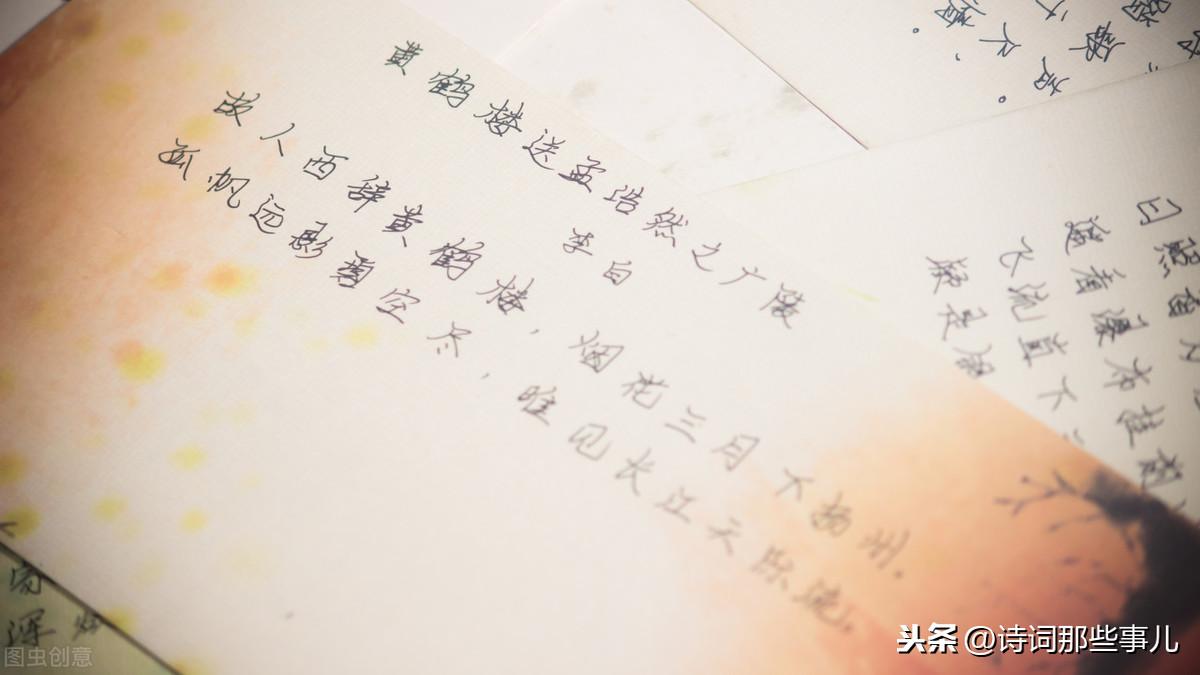 黄鹤楼送孟浩然之广陵
李白
故人西辞黄鹤楼，烟花三月下扬州.
孤帆远影碧空尽，唯见长江天际流.
日照香
遥看瀑布挂前
飞流直下
疑是银
图虫创意
头条 @诗词那些事儿